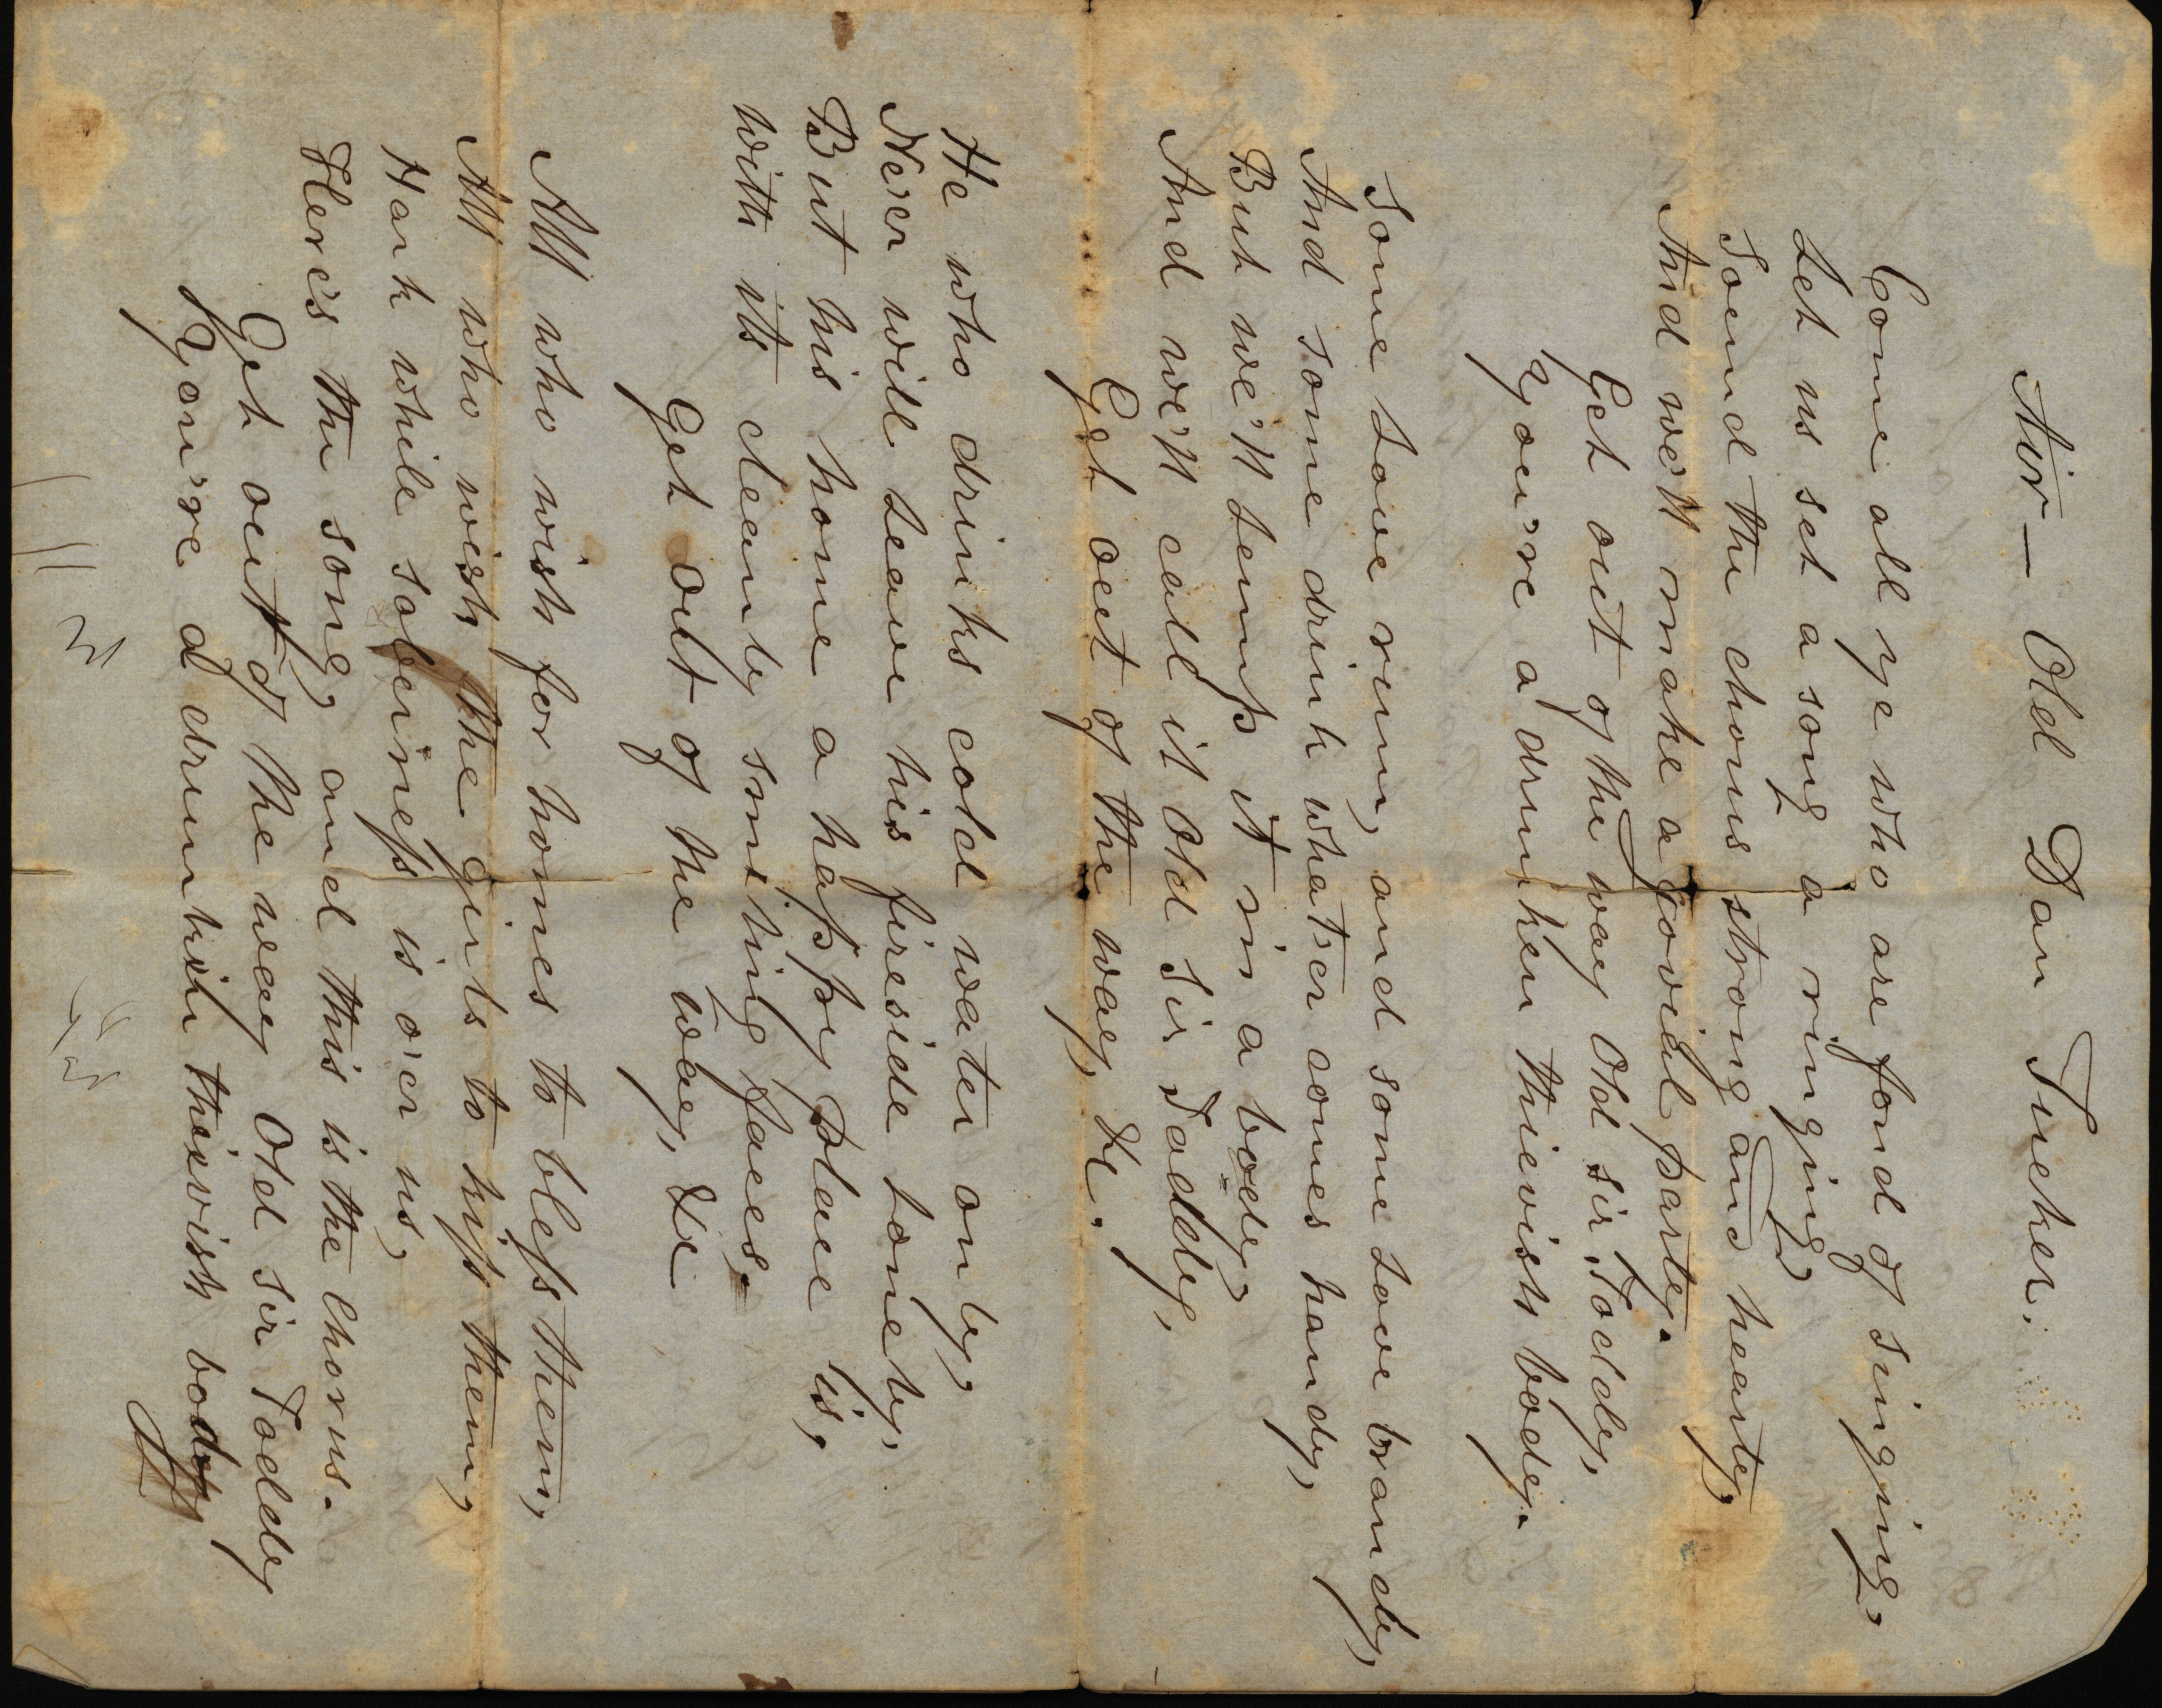 Air — Old Dan Tucker.
Come all ye who are fond of singing,
Let us set a song a ringing,
Sound the chorus strong and hearty,
And we'll make a jovial party.
Get out of the way Old Sir Toddy,
You're a drunken thievish body.
Some Love rum, and some Love brandy,
And some drink what'ser comes handy,
But we'll Lump it in a body,
And we'll call it Old Sir Toddy,
Get out of the way, &c.
He who drinks cold water only,
Never will Leave his fireside lonely,
But his home a happy place is,
With its cleanly smiling faces.
Get out of the way, &c
All who wish for homes to bless them,
All who wish the girls to kiss them,
Hark while soberness is o'er us,
Here's the song, and this is the Chorus.
Get out of the way Old Sir Toddy
You're a drunken thievish body